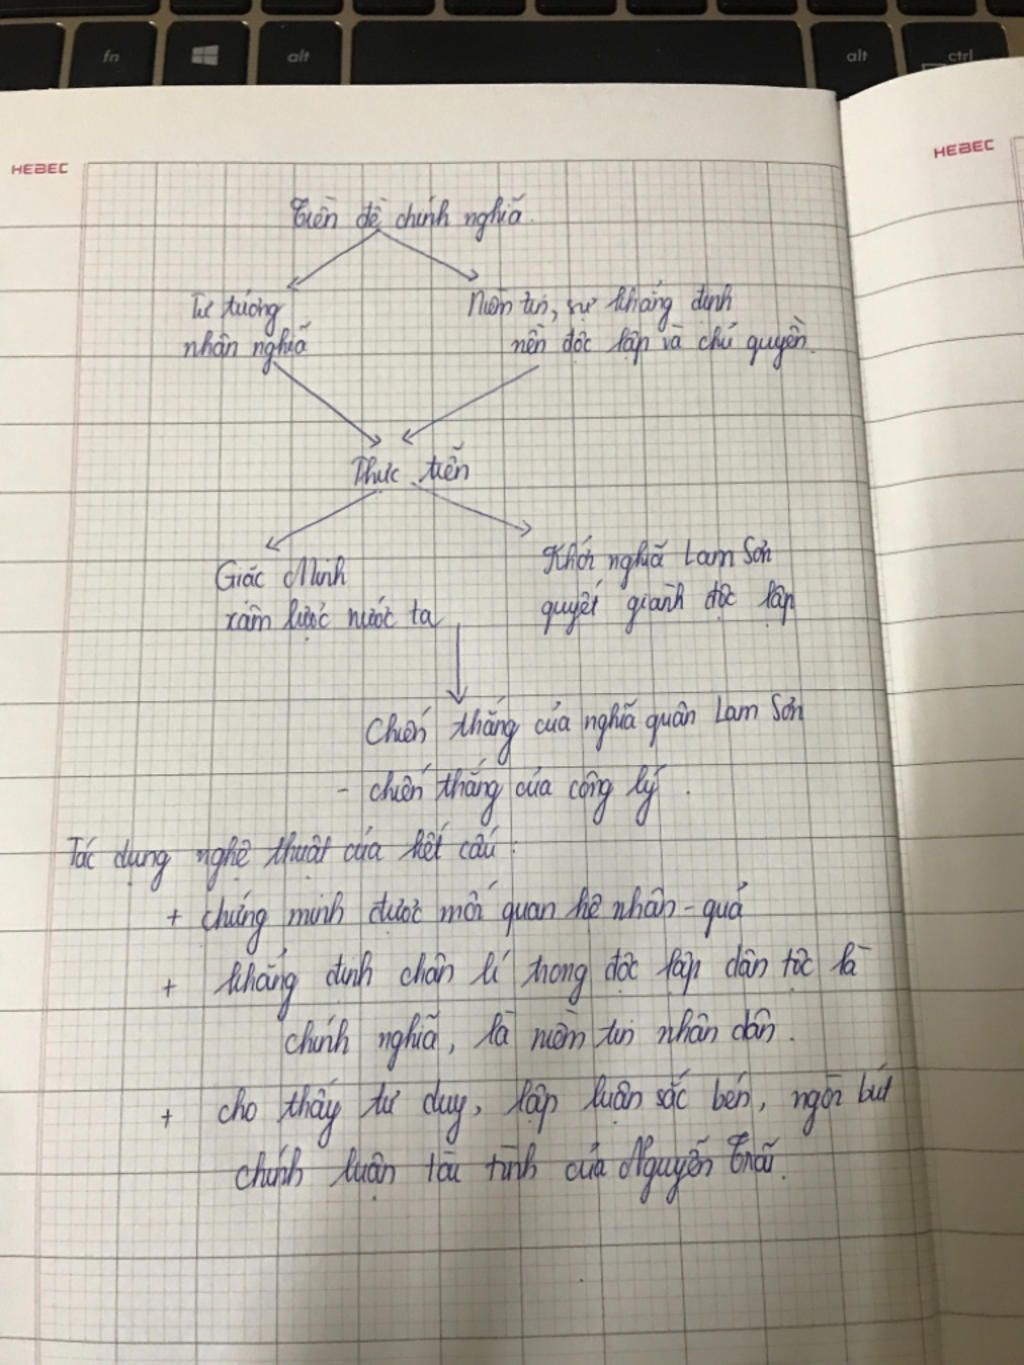 fn alt alt ctrl
HEBEC HEBEC
Tiền đề chính nghĩa.
Tư tưởng
nhân nghĩa
Niềm tin, sự khẳng định
nền độc lập và chủ quyền.
Thực tiễn
Giặc Minh
xâm lược nước ta
Khởi nghĩa Lam Sơn
quyết giành độc lập
Chiến thắng của nghĩa quân Lam Sơn
- chiến thắng của công lý.
Tác dụng nghệ thuật của kết cấu:
+ chứng minh được mối quan hệ nhân - quả
+ khẳng định chân lí trong độc lập dân tộc là
chính nghĩa, là niềm tin nhân dân.
+ cho thấy tư duy, lập luận sắc bén, ngòi bút
chính luận tài tình của Nguyễn Trãi.